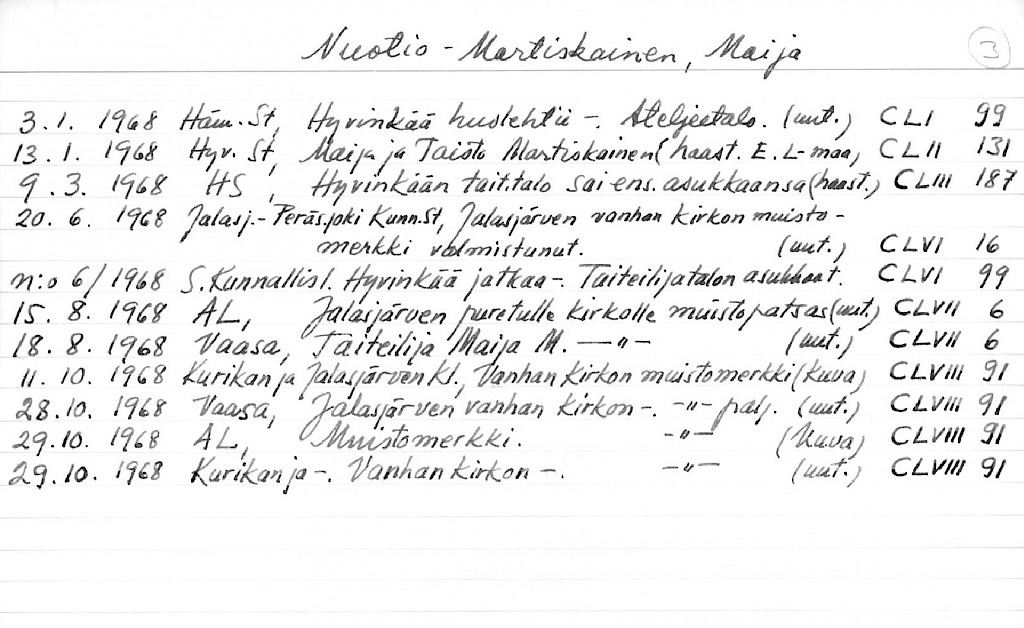 Nuotio - Martiskainen, Maija 3
3.1. 1968 Häm. St, Hyvinkää huolehtii -. Ateljeetalo. (uut.) CLI 99
13.1. 1968 Hyv. St, Maija ja Taisto Martiskainen (haast. E. L-maa) CLII 131
9.3. 1968 HS, Hyvinkään tait.talo sai ens. asukkaansa (haast.) CLIII 187
20.6. 1968 Jalasj.- Peräs.joki Kunn.St, Jalasjärven vanhan kirkon muisto-
merkki valmistunut. (uut.) CLVI 16
n:o 6/1968 S. Kunnallisl. Hyvinkää jatkaa -. Taiteilijatalon asukkaat. CLVI 99
15.8. 1968 AL, Jalasjärven puretulle kirkolle muistopatsas (uut.) CLVII 6
18.8. 1968 Vaasa, Taiteilija Maija M. —"— (uut.) CLVII 6
11.10. 1968 Kurikan ja Jalasjärven Kl., Vanhan kirkon muistomerkki (kuva) CLVIII 91
28.10. 1968 Vaasa, Jalasjärven vanhan kirkon -. -"- palj. (uut.) CLVIII 91
29.10. 1968 AL, Muistomerkki. -"- (kuva) CLVIII 91
29.10. 1968 Kurikan ja -. Vanhan kirkon -. -"- (uut.) CLVIII 91